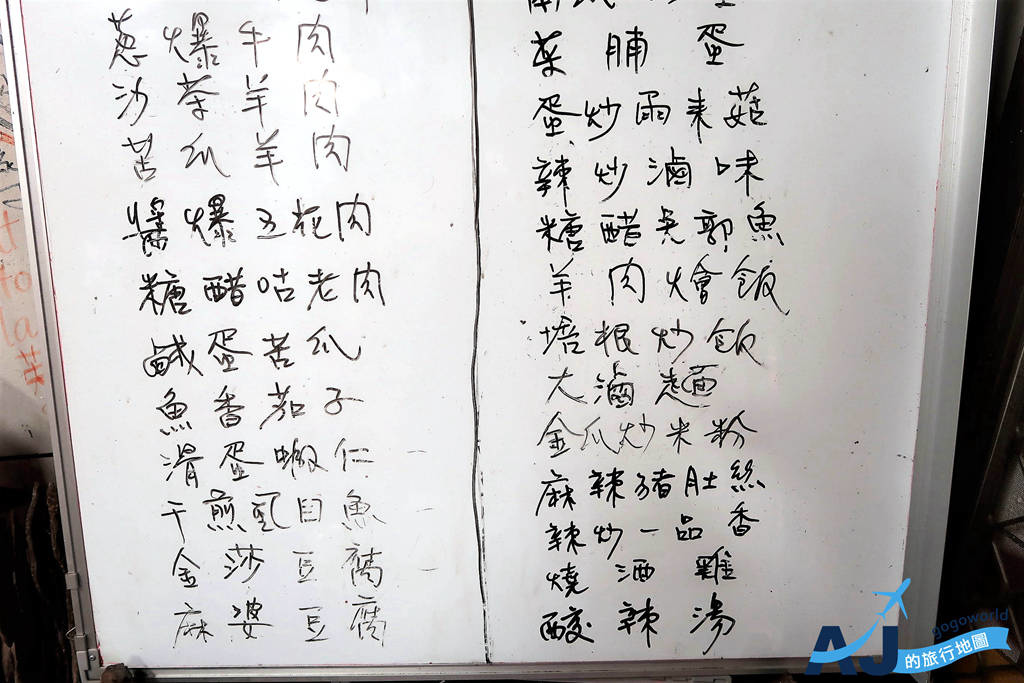 蔥爆牛肉
沙茶羊肉
苦瓜羊肉
醬爆五花肉
糖醋咕老肉
鹹蛋苦瓜
魚香茄子
滑蛋蝦仁
干煎虱目魚
金莎豆腐
麻婆豆腐
菜脯蛋
蛋炒雨來菇
辣炒滷味
糖醋堯郭魚
羊肉燴飯
培根炒飯
大滷麵
金瓜炒米粉
麻辣豬肚絲
辣炒一品香
燒酒雞
酸辣湯
AJ的旅行地圖
gogoworld